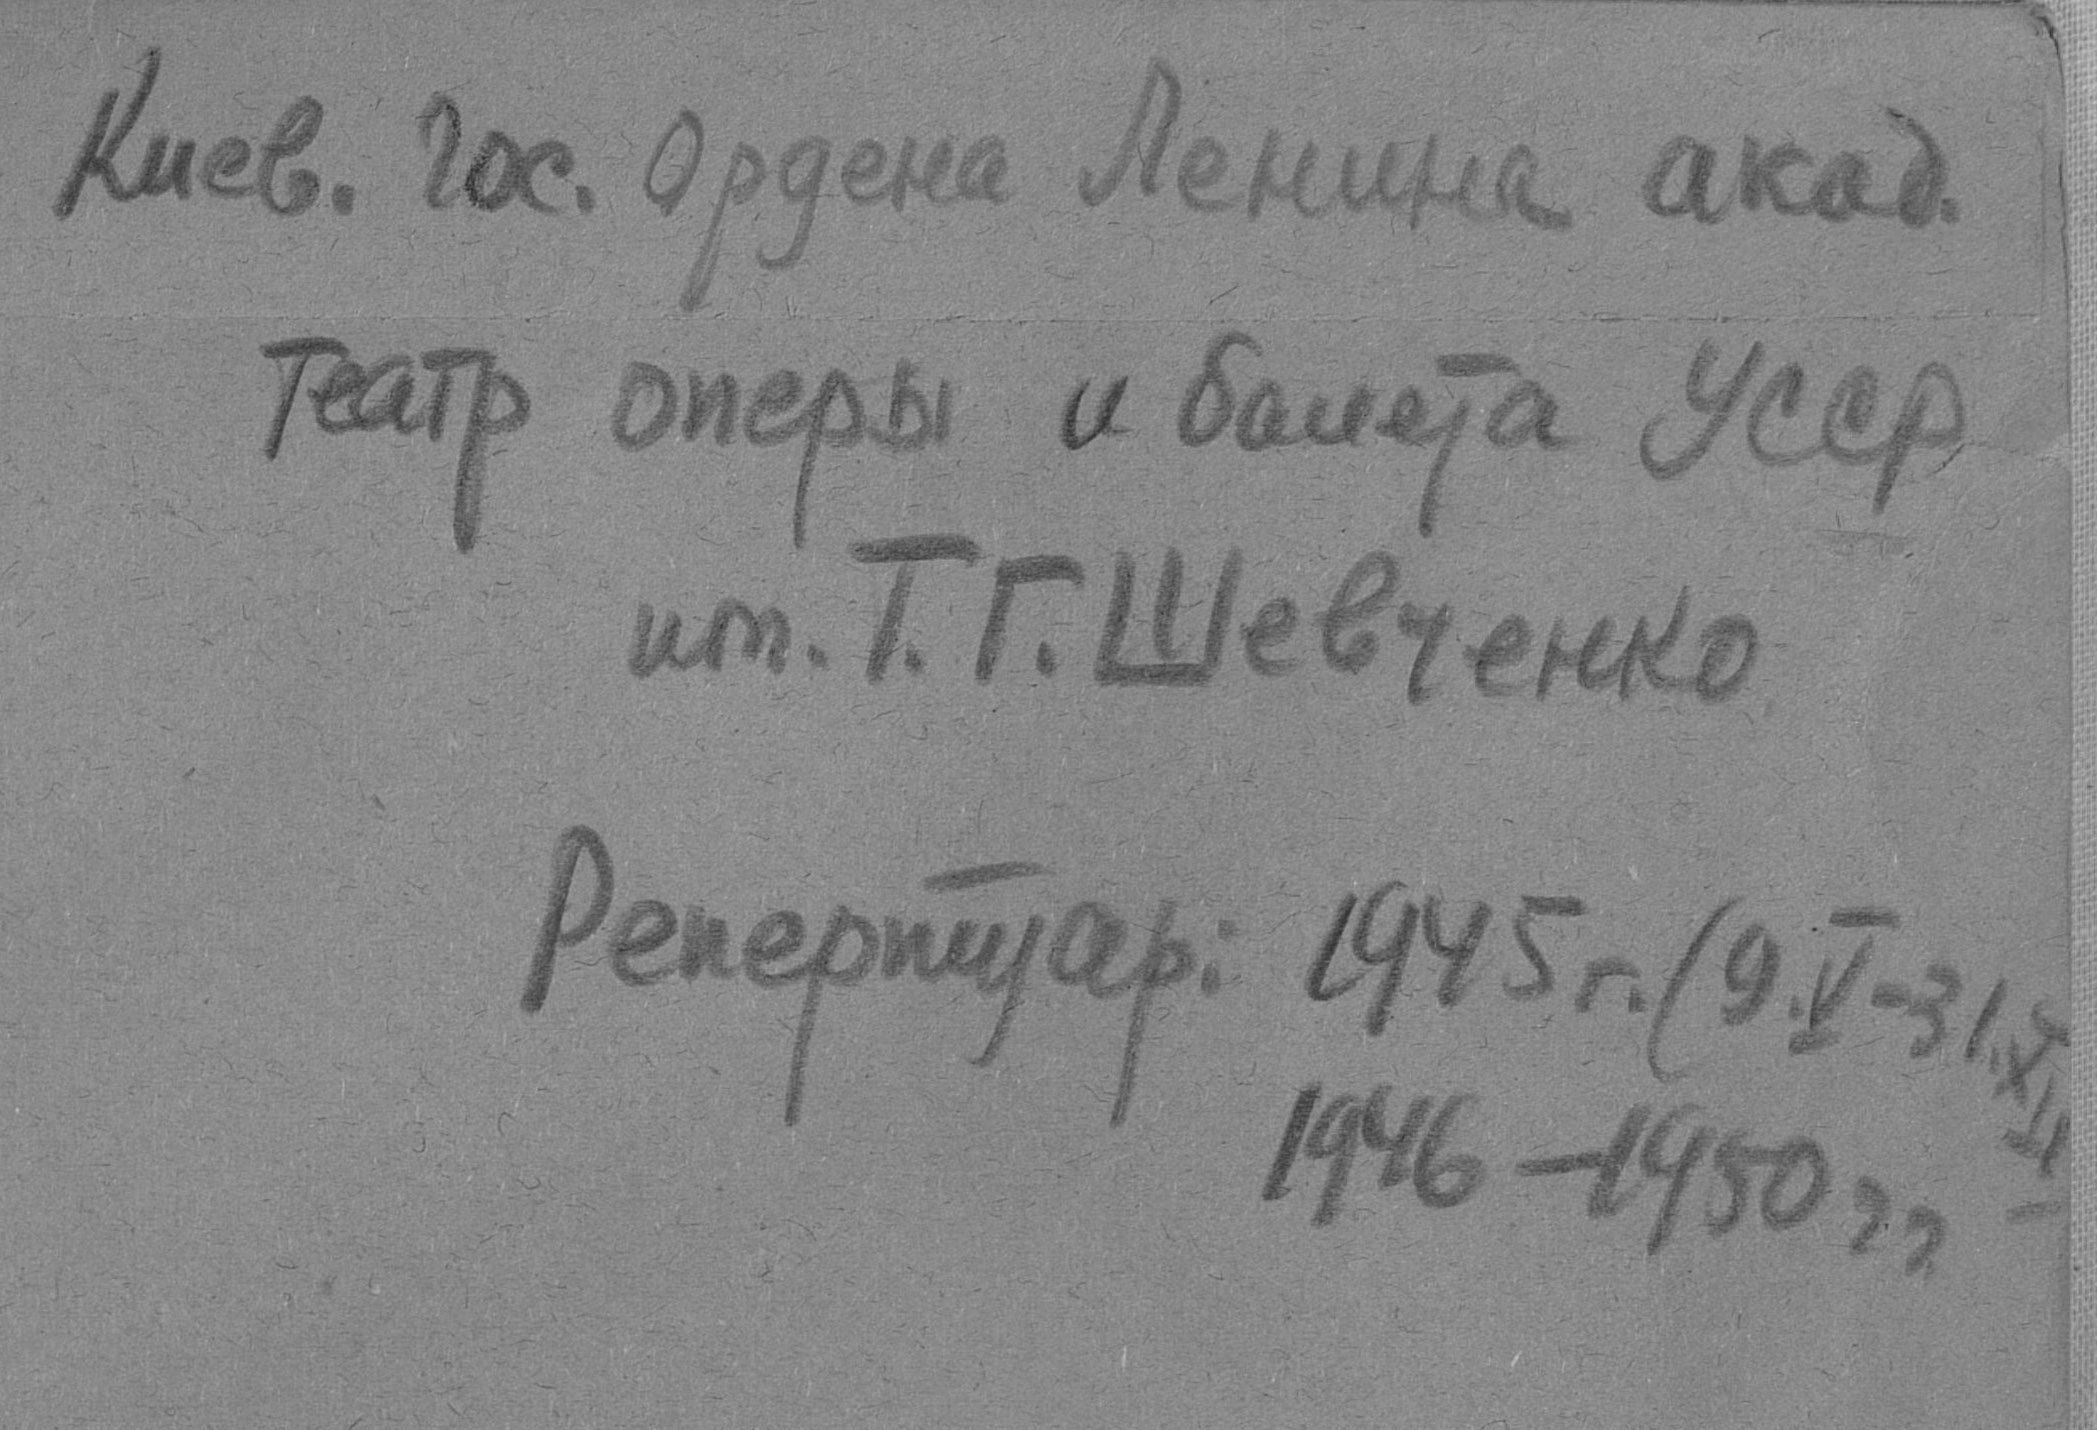 Киев. Гос. Ордена Ленина акад.
Театр оперы и балета УССР
им. Т.Г. Шевченко
Репертуар: 1945 г. (9.V-31.XII
1946-1950 гг